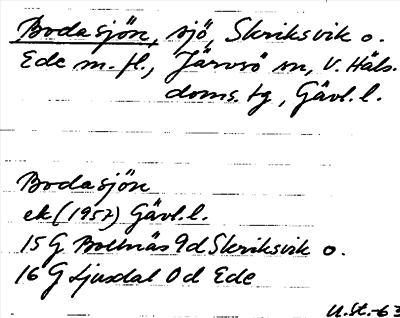 Bodasjön, sjö, Skriksvik o.
Ede m. fl., Järvsö sn, V. Häls.
doms. tg, Gävl. l.
Bodasjön
ek (1957) Gävl. l.
15 G Bollnäs 9d Skriksvik o.
16 G Ljusdal 0d Ede
U. St. -63